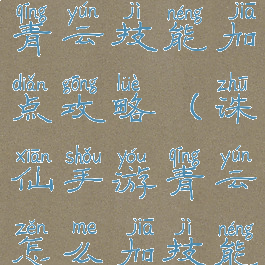 qīng yún jì néng jiā
青云技能加
diǎn gōng lüè zhū
点攻略（诛
xiān shǒu yóu qīng yún
仙手游青云
zěn me jiā jì néng
怎么加技能